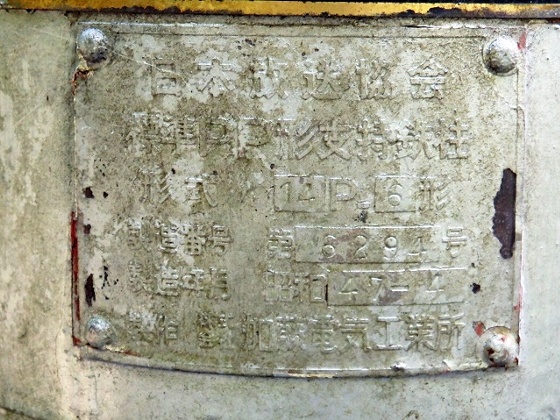 日本放送協会
標準PP形支持鉄柱
形式 14P-6形
製造番号 第6294号
製造年月 昭和47-4
製作 加藤電気工業所